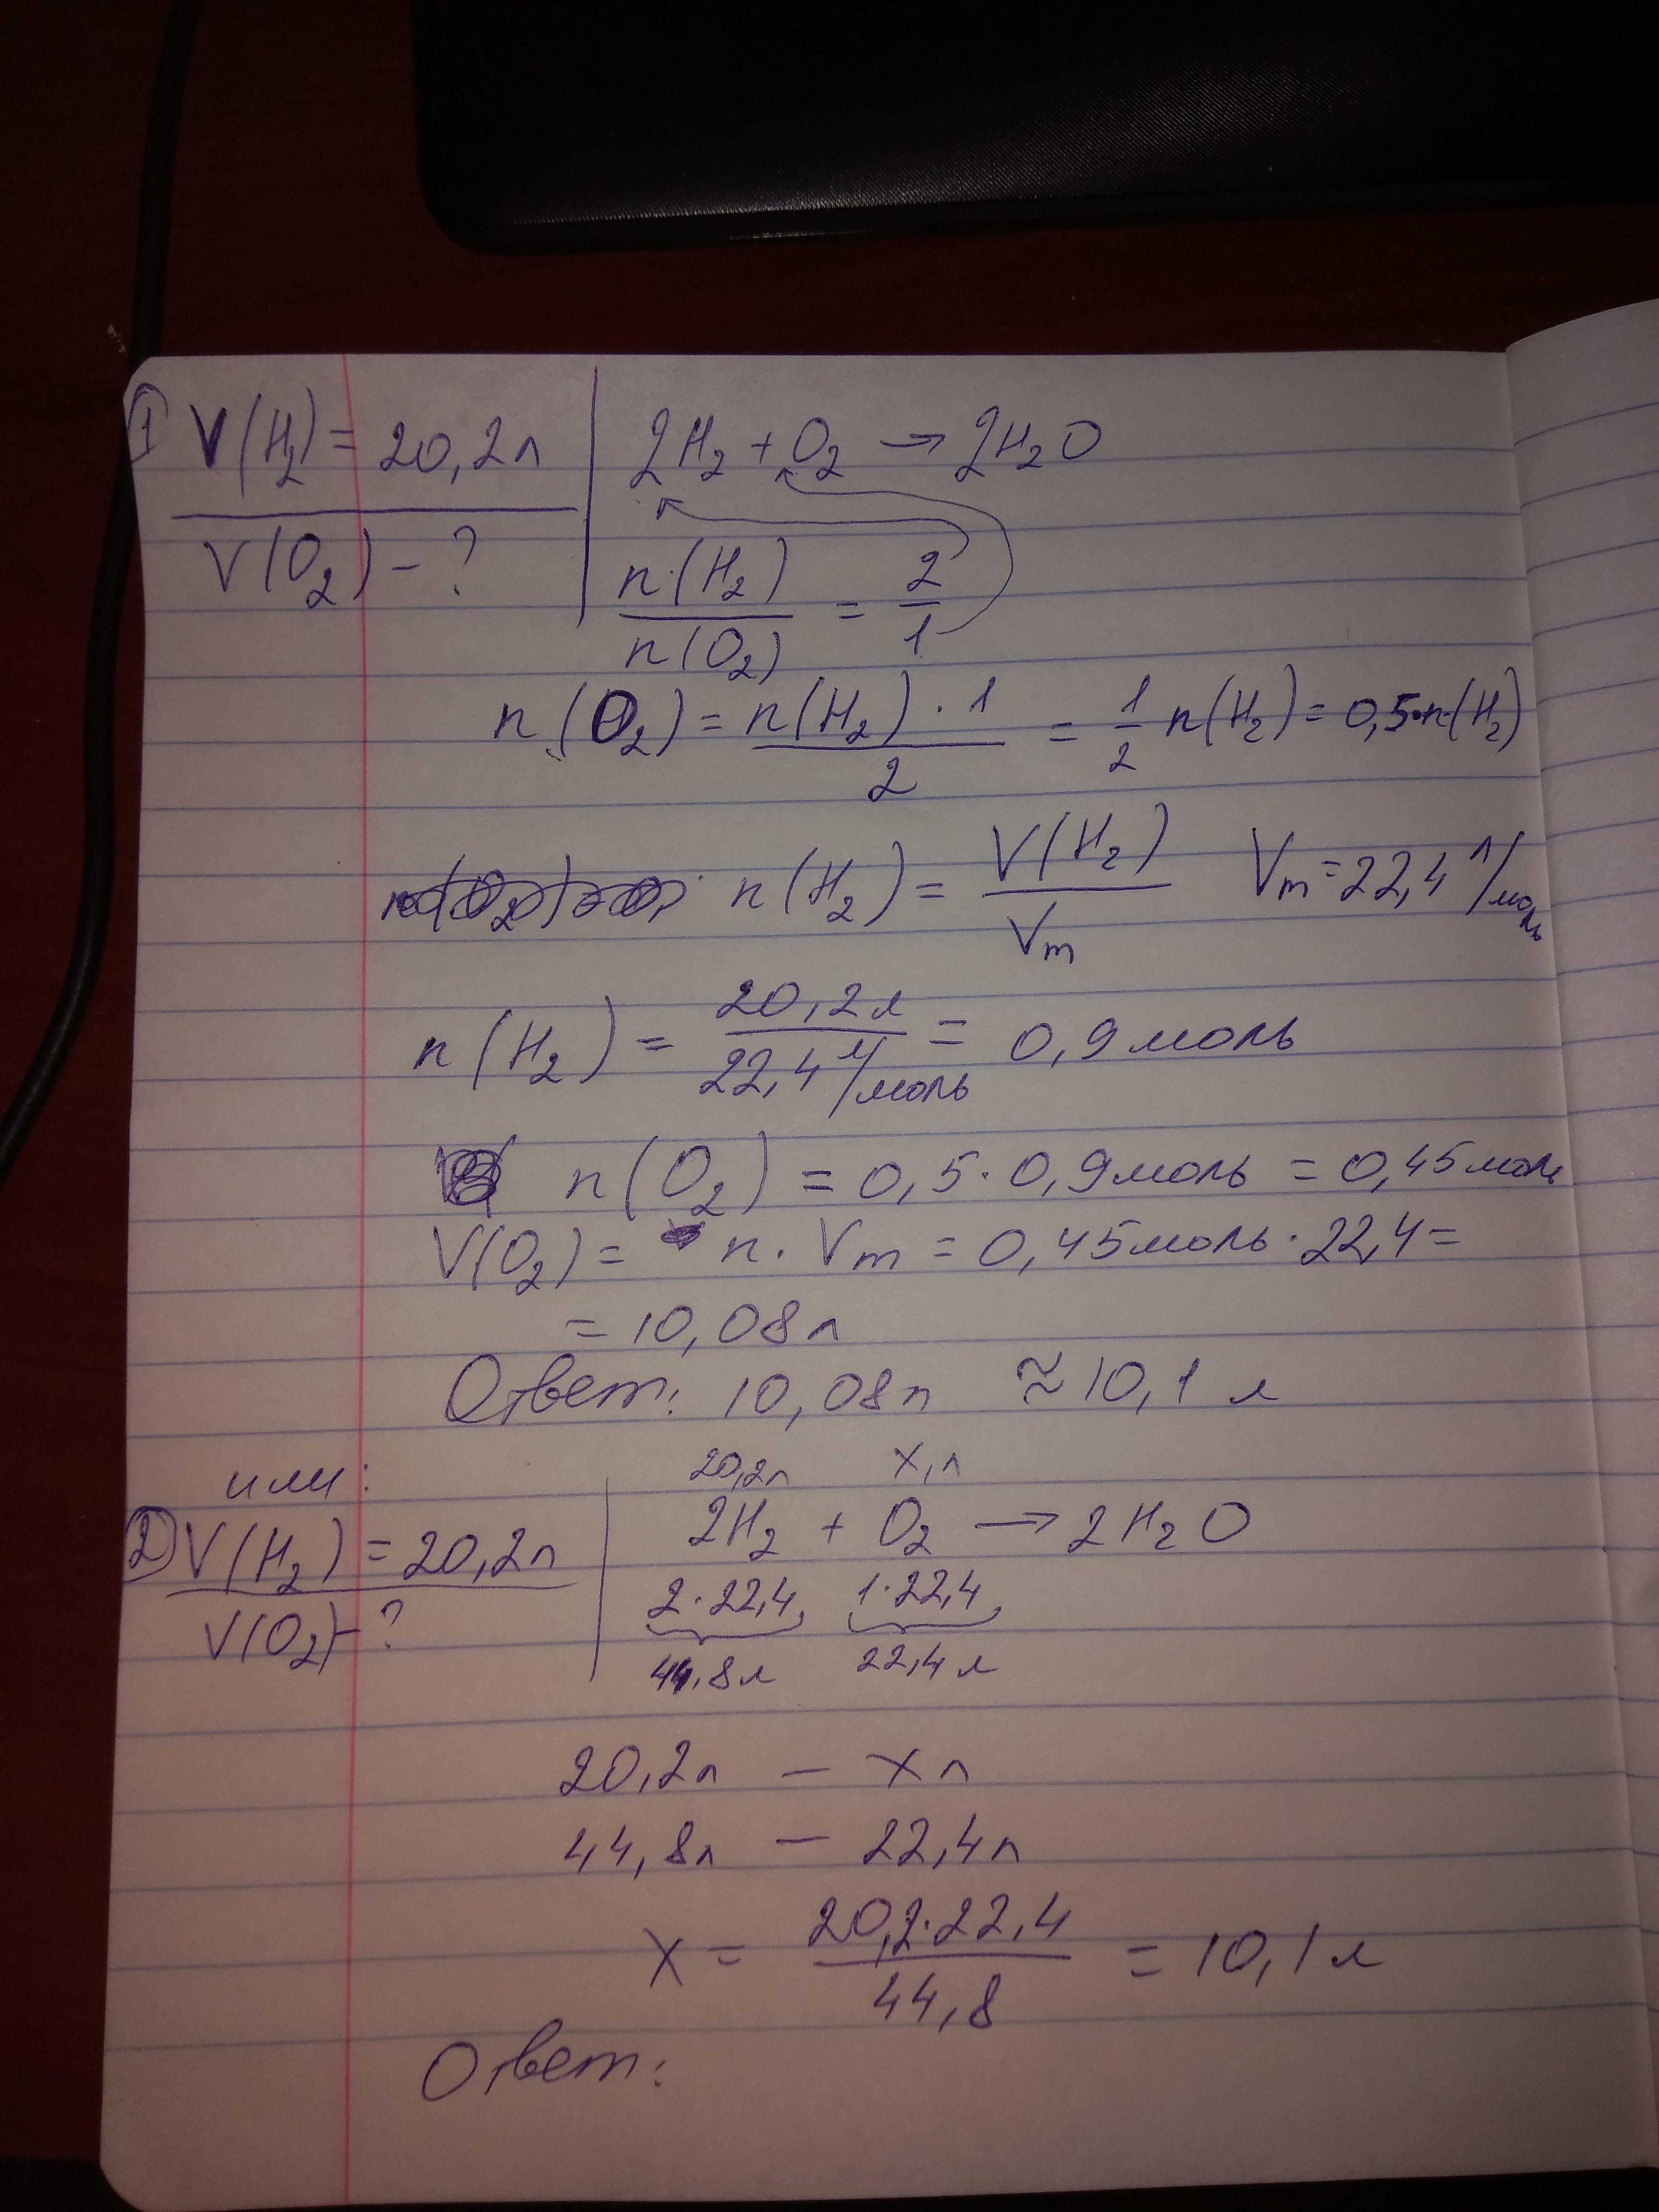 ① V(H₂) = 20,2л
V(O₂) - ?
2H₂ + O₂ → 2H₂O
n(H₂)/n(O₂) = 2/1
n(O₂) = n(H₂)·1/2 = 1/2 n(H₂) = 0,5·n(H₂)
n(H₂) = V(H₂)/Vm Vm = 22,4 л/моль
n(H₂) = 20,2л/22,4 л/моль = 0,9 моль
n(O₂) = 0,5·0,9 моль = 0,45 моль
V(O₂) = n·Vm = 0,45 моль·22,4 =
= 10,08л
Ответ: 10,08л ≈ 10,1 л
или:
② V(H₂) = 20,2л
V(O₂) - ?
20,2л x, л
2H₂ + O₂ → 2H₂O
2·22,4 1·22,4
44,8л 22,4 л
20,2л – xл
44,8л – 22,4л
x = 20,2·22,4/44,8 = 10,1 л
Ответ: